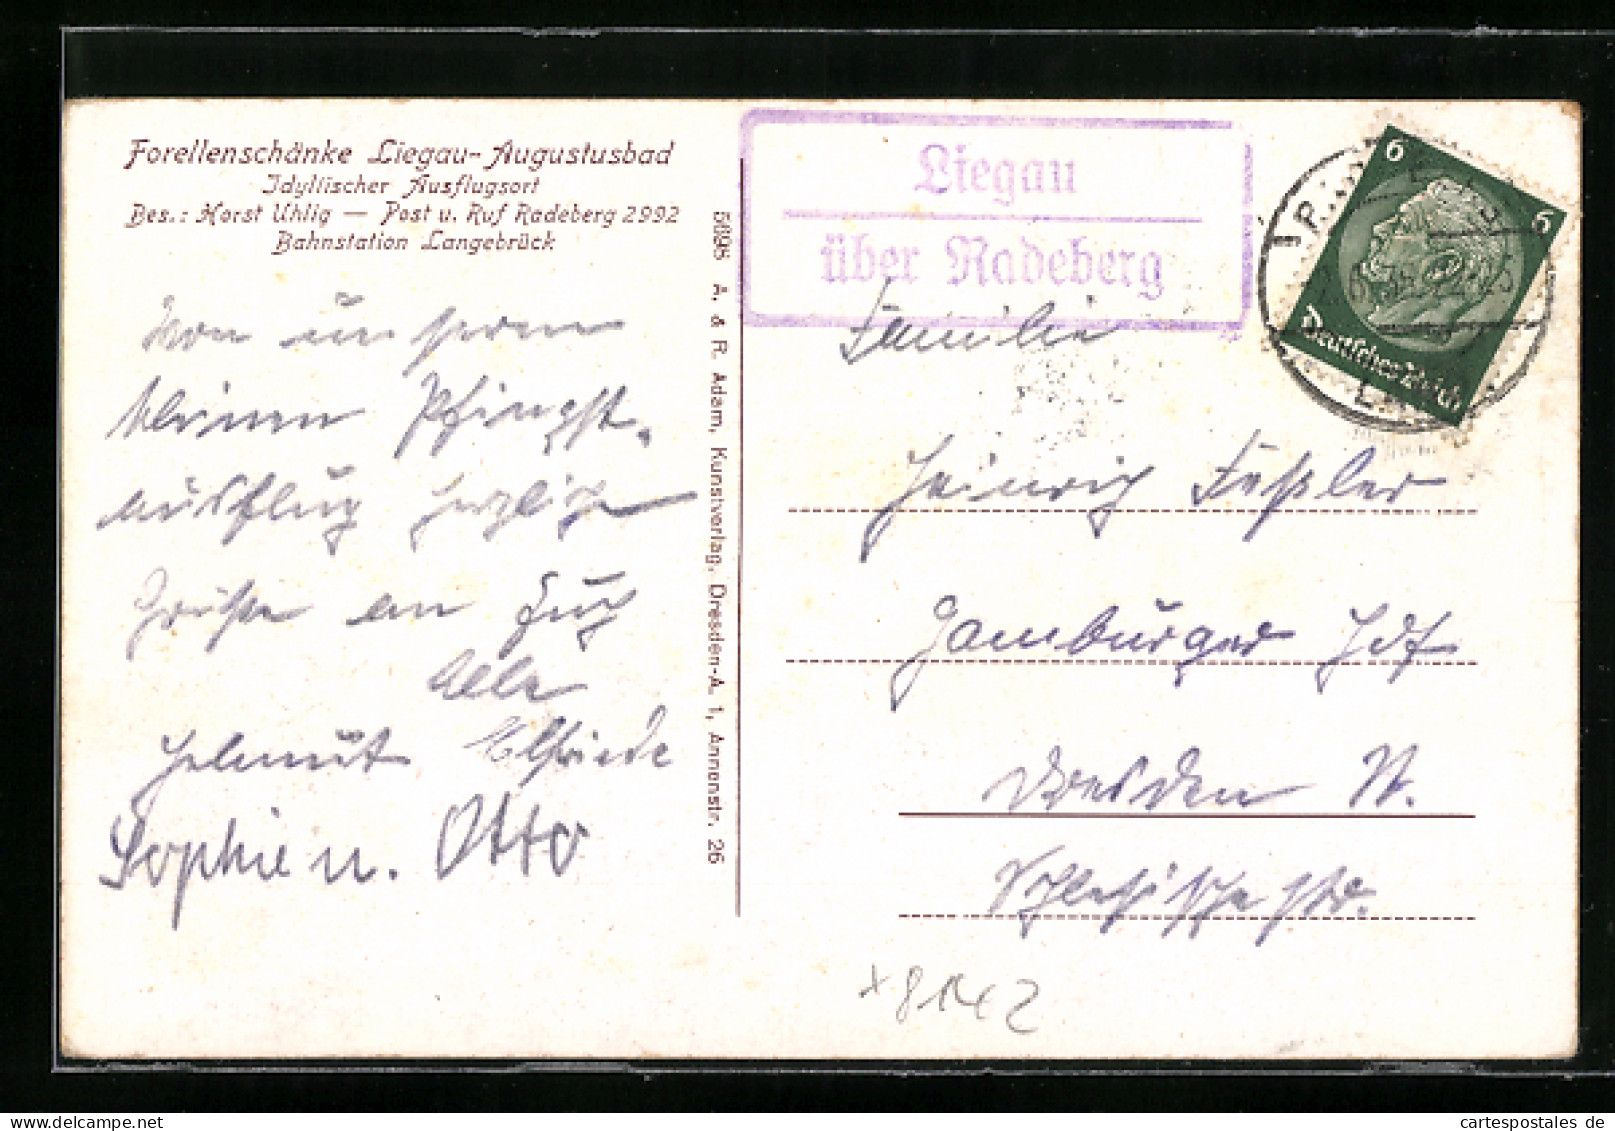 Forellenschänke Liegau-Augustusbad
Idyllischer Ausflugsort
Bes.: Horst Uhlig — Post u. Ruf Radeberg 2992
Bahnstation Langebrück
Von unserem
kleinen Pfingst-
ausflug herzliche
Grüße an Euch
Alle
Helmut Elfriede
Sophie u. Otto
5695 A. & R. Adam, Kunstverlag, Dresden-A. 1, Annenstr. 26
Liegau
über Radeberg
6
6
Deutsches Reich
Familie
Heinrich Feßler
Dresden N.
Schlesische str.
cartespostales de